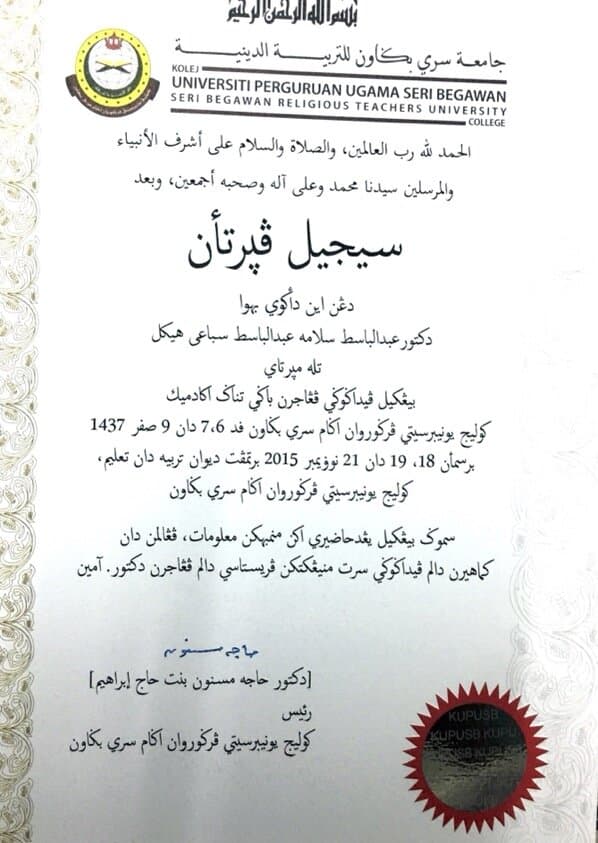 بسم الله الرحمن الرحيم
جامعة سري بڬاون للتربية الدينية
KOLEJ
UNIVERSITI PERGURUAN UGAMA SERI BEGAWAN
SERI BEGAWAN RELIGIOUS TEACHERS UNIVERSITY
COLLEGE
الحمد لله رب العالمين، والصلاة والسلام على أشرف الأنبياء
والمرسلين سيدنا محمد وعلى آله وصحبه أجمعين، وبعد
سيجيل ڤپرتأن
دڠن اين داڬوي بهوا
دكتور عبدالباسط سلامه عبدالباسط سباعى هيكل
تله مپرتاي
بيڠكيل ڤيداڬوڬي ڤڠاجرن باڬي تناڬ اكادميك
كوليج يونيبرسيتي ڤرڬوروان اڬام سري بڬاون فد 7،6 دان 9 صفر 1437
برسمأن 18، 19 دان 21 نوۏيمبر 2015 برتمڤت ديوان تربيه دان تعليم،
كوليج يونيبرسيتي ڤرڬوروان اڬام سري بڬاون
سموڬ بيڠكيل يڠدحاضيري اكن منمبهكن معلومات، ڤڠالمن دان
كماهيرن دالم ڤيداڬوڬي سرت منيڠكتكن ڤريستاسي دالم ڤڠاجرن دكتور. آمين
حاجه مسنون
[دكتور حاجه مسنون بنت حاج إبراهيم]
رئيس
كوليج يونيبرسيتي ڤرڬوروان اڬام سري بڬاون
KUPUSB
KUPUSB KUPU
USB KUPU